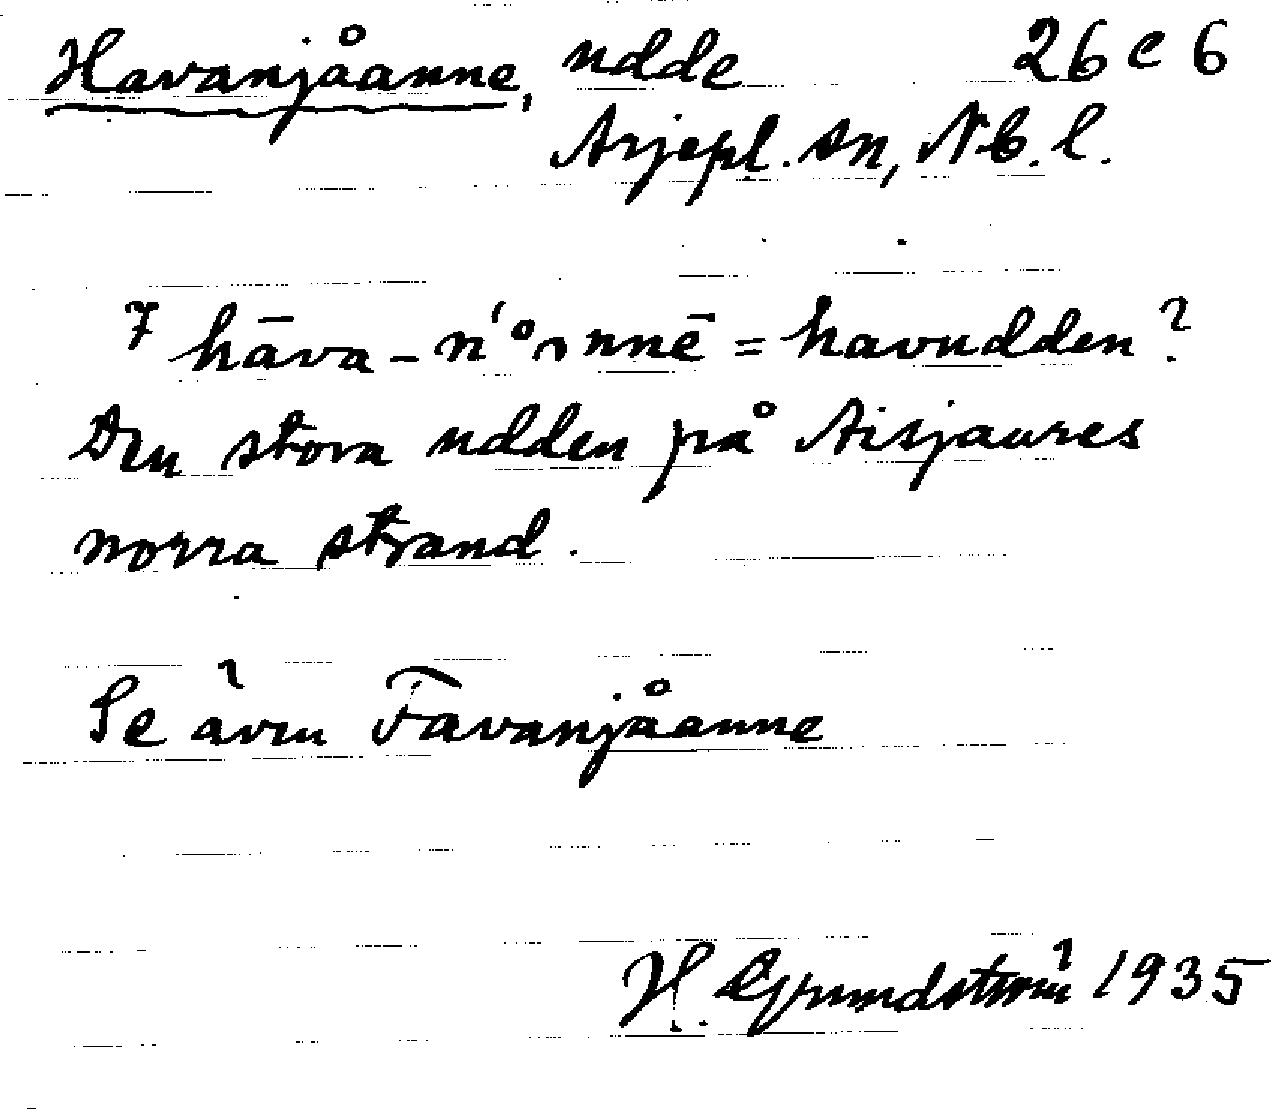 Havanjåanne, udde 26 e 6
Arjepl. sn, Nb. l.
hāva - = havudden?
Den stora udden på Aisjaures
norra strand.
Se även Favanjåanne
H. Grundström 1935